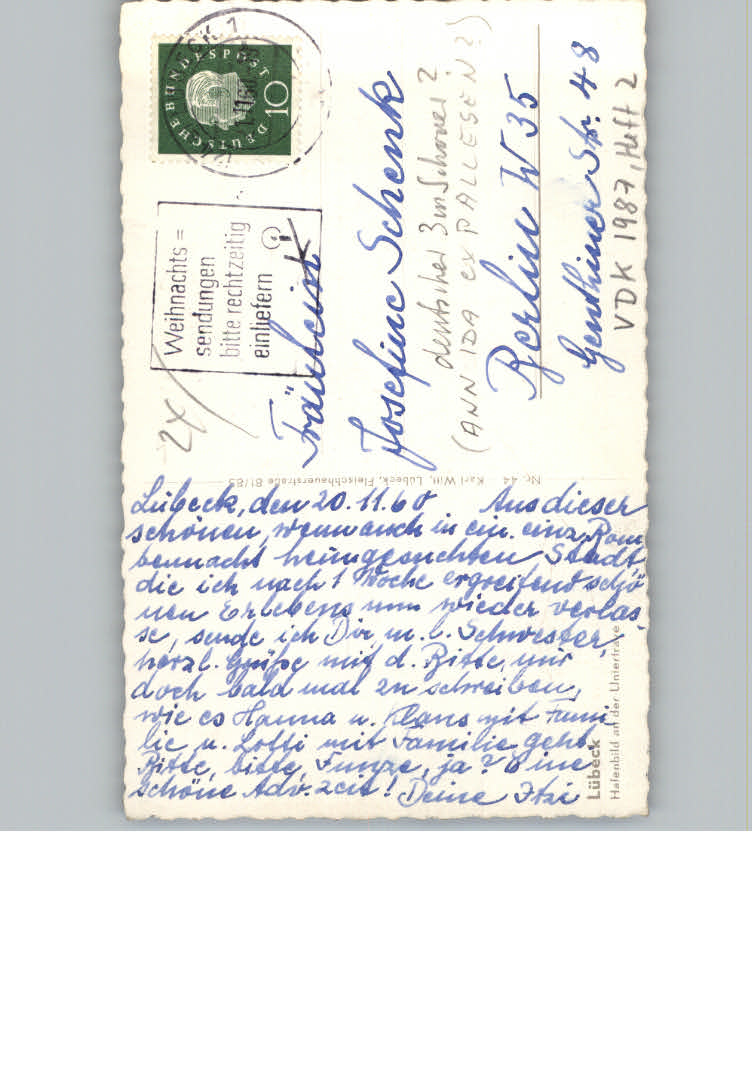 Lübeck, den 20.11.60 Aus dieser
schönen, wenn auch in ein. einz. Bom
bennacht heimgesuchten Stadt,
die ich nach 1 Woche ergreifend schö
nen Erlebens nun wieder verlas
se, sende ich Dir, m. l. Schwester,
herzl. Grüße mit d. Bitte, mir
doch bald mal zu schreiben,
wie es Hanna u. Klaus mit Fami
lie, u. Lotti mit Familie geht.
Bitte, bitte, ja? Eine
schöne Adv. zeit! Deine
Lübeck
Hafenbild an der Untertrave
Nr. 44 Karl Witt, Lübeck, Fleischhauerstraße 81/83
DEUTSCHE BUNDESPOST
10
Weihnachts=
sendungen
bitte rechtzeitig
einliefern
2X
Fräulein
Josefine Schenk
deutscher 3m Schoner ?
(ANN IDA ex PALLESEN ?)
Berlin W 35
Genthiner Str. 48
VDK 1987, Heft 2